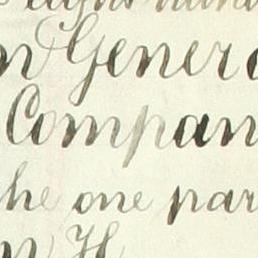 n Gener
Compan
he one par
n H